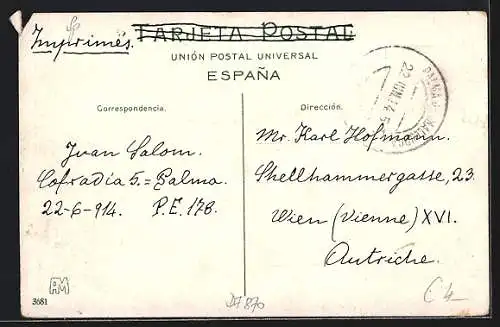 Imprimés.
TARJETA POSTAL
UNIÓN POSTAL UNIVERSAL
ESPAÑA
Correspondencia.
Dirección.
22 JUN 14
Juan Salom.
Cofradia 5.= Palma.
22-6-914. P.E. 178.
Mr. Karl Hofmann.
Shellhammergasse, 23.
Wien (Vienne) XVI.
Autriche.
AM
3681